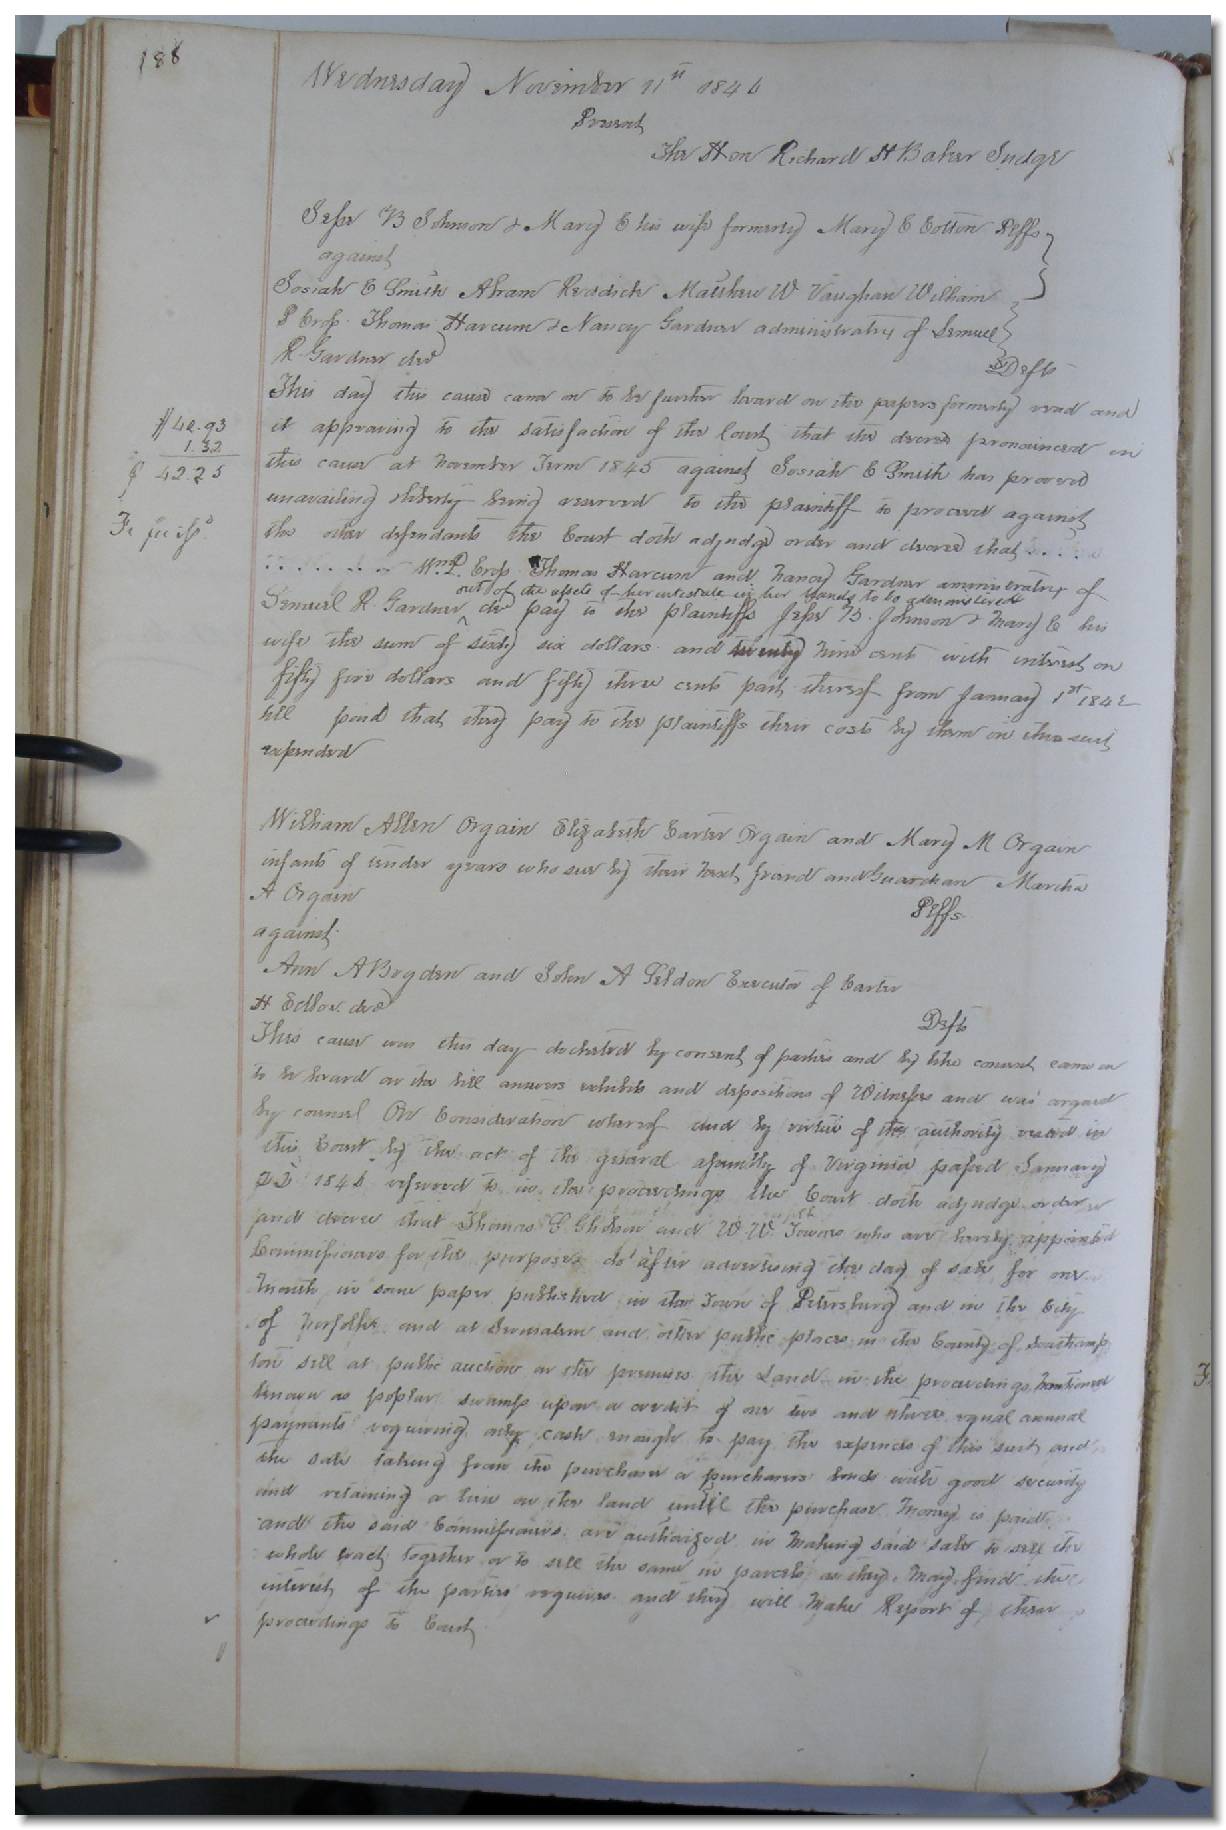 188
Wednesday November 11th 1846
Present
The Hon Richard H Baker Judge
Jesse B Johnson & Mary E his wife formerly Mary E Cotton Plffs
against
Josiah C Smith Abram Reddick Matthew W Vaughan William
P Cross Thomas Harcum & Nancy Gardner administratrix of Lemuel
R Gardner decd
Defts
This day this cause came on to be further heard on the papers formerly read and
it appearing to the satisfaction of the Court that the decree pronounced in
this cause at November Term 1845 against Josiah C Smith has proved
unavailing & liberty being reserved to the plaintiff to proceed against
the other defendants the Court doth adjudge order and decree that
Wm P. Cross Thomas Harcum and Nancy Gardner aministratrix of
out of the assets of her intestate in her hands to be administered
Lemuel R. Gardner decd pay to the plaintiffs Jesse B. Johnson & Mary E his
wife the sum of sixty six dollars and twenty nine cents with interest on
fifty five dollars and fifty three cents part thereof from January 1st 1842
till paid that they pay to the plaintiffs their costs by them in this suit
expended
$ 40.93
1.32
$ 42.25
Fi fa issd
William Allen Orgain Elizabeth Carter Orgain and Mary M Orgain
infants of tender years who sue by their next friend and Guardian Martha
A Orgain
Plffs
against
Ann A Bogden and John A Seldon Executor of Carter
H Edloe decd
Defts
This cause was this day docketed by consent of parties and by like consent came on
to be heard on the bill answers exhibits and depositions of Witnesses and was argued
by counsel On Consideration whereof and by virtue of the authority vested in
this Court by the act of the general assembly of Virginia passed January
22 1846 referred to in the proceedings the Court doth adjudge order
and decree that Thomas C Gholson and W W Towns who are hereby appointed
Commissioners for the purpose do after advertising the day of sale for one
Month in some paper published in the Town of Petersburg and in the City
of Norfolk and at Jerusalem and other public places in the County of Southamp
ton sell at public auction on the premises the Land in the proceedings mentioned
known as poplar swamp upon a credit of one two and three equal annual
payments requiring only cash enough to pay the expences of this suit and
the sale taking from the purchaser or purchasers bond with good security
and retaining a lien on the land until the purchase Money is paid
and the said Commissioners are authorized in Making said sale to sell the
whole tract together or to sell the same in parcels as they May find the
interest of the parties requires and they will Make Report of their
proceedings to Court